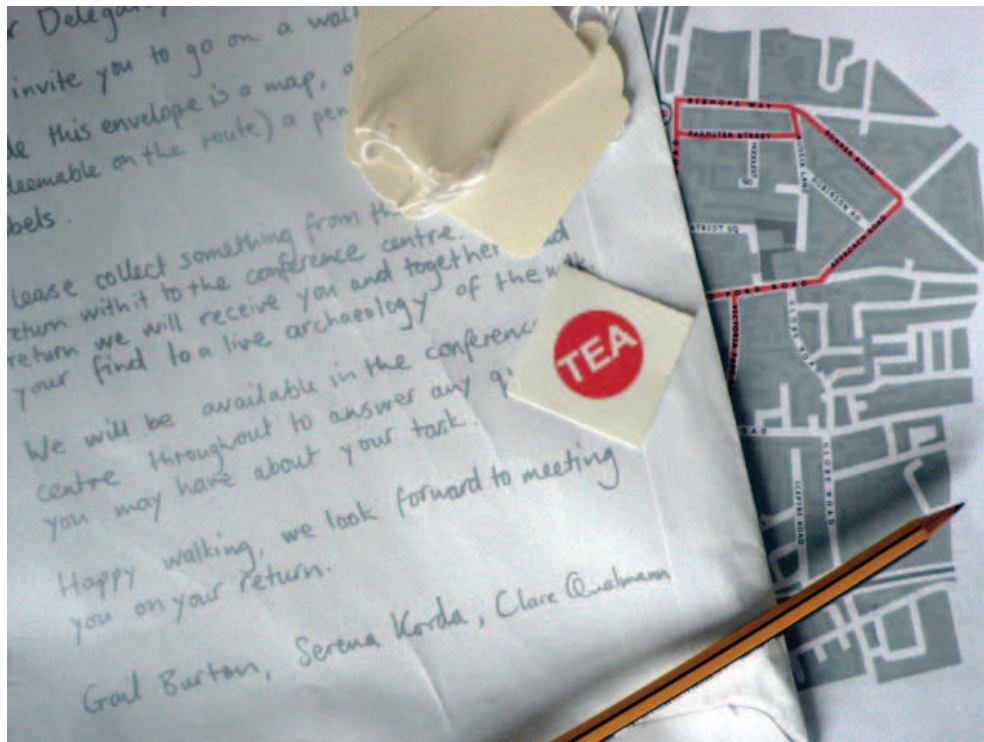 r Delegate
invite you to go on a walk
de this envelope is a map, a
deemable on the route) a pen
bels.
lease collect something from th
eturn with it to the conference centre.
return we will receive you and together add
your find to a live archaeology of the walk
We will be available in the conference
centre throughout to answer any qu
you may have about your task.
Happy walking, we look forward to meeting
you on your return.
Gail Burton, Serena Korda, Clare Qualmann
TEA
PARMITER STREET
RUSSIA LANE
BONNER ROAD
ROBINSON RD
APPROACH ROAD
FORD ROAD
GLOBE ROAD
OAD
GLOBE ROAD
SCEPTRE ROAD